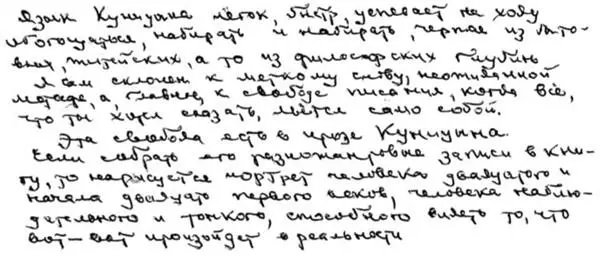 Язык Куницына меток, быстр, успевает на ходу
обогащаться, набирать и набирать, черпая из быто-
вых, житейских, а то из философских глубин
Я сам склонен к меткому слову, неожиданной
метафоре, а, главное, к свободе писания, когда всё,
что ты хотел сказать, льётся само собой.
Эта свобода есть в прозе Куницына.
Если собрать его разножанровые записи в кни-
гу, то нарисуется портрет человека двадцатого и
начала двадцать первого веков, человека наблю-
дательного и тонкого, способного видеть то, что
вот-вот произойдет в реальности